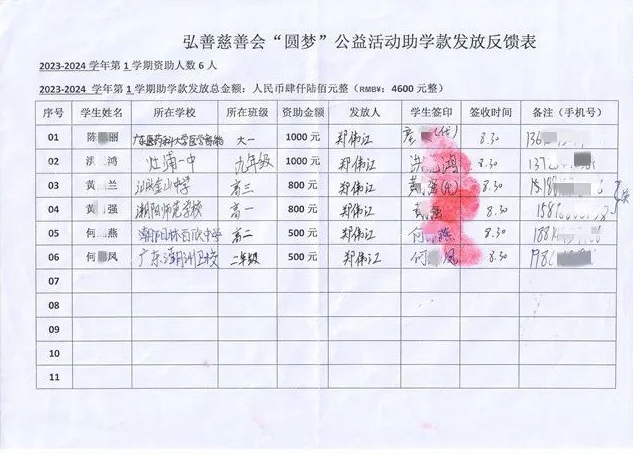 弘善慈善会“圆梦”公益活动助学款发放反馈表
2023-2024 学年第 1 学期资助人数 6 人
2023-2024 学年第 1 学期助学款发放总金额：人民币肆仟陆佰元整（RMB¥：4600 元整）
序号 学生姓名 所在学校 所在班级 资助金额 发放人 学生签印 签收时间 备注（手机号）
01 陈 丽 大一 1000 元 郑伟江 (代) 8.30 136
02 洪 鸿 灶浦一中 九年级 1000 元 郑伟江 洪 鸿 8.30 137
03 黄 兰 汕头金山中学 高三 800 元 郑伟江 黄 (代) 8.30
04 黄 强 潮阳师范学校 高一 800 元 郑伟江 黄 强 8.30 158
05 何 燕 潮阳林百欣中学 高二 500 元 郑伟江 何 燕 8.30
06 何 凤 广东潮州卫校 二年级 500 元 郑伟江 何 凤 8.30
07
08
09
10
11